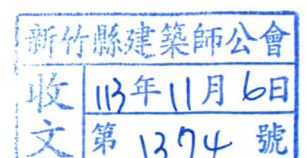 新竹縣建築師公會
收文
113年11月6日
第1374號